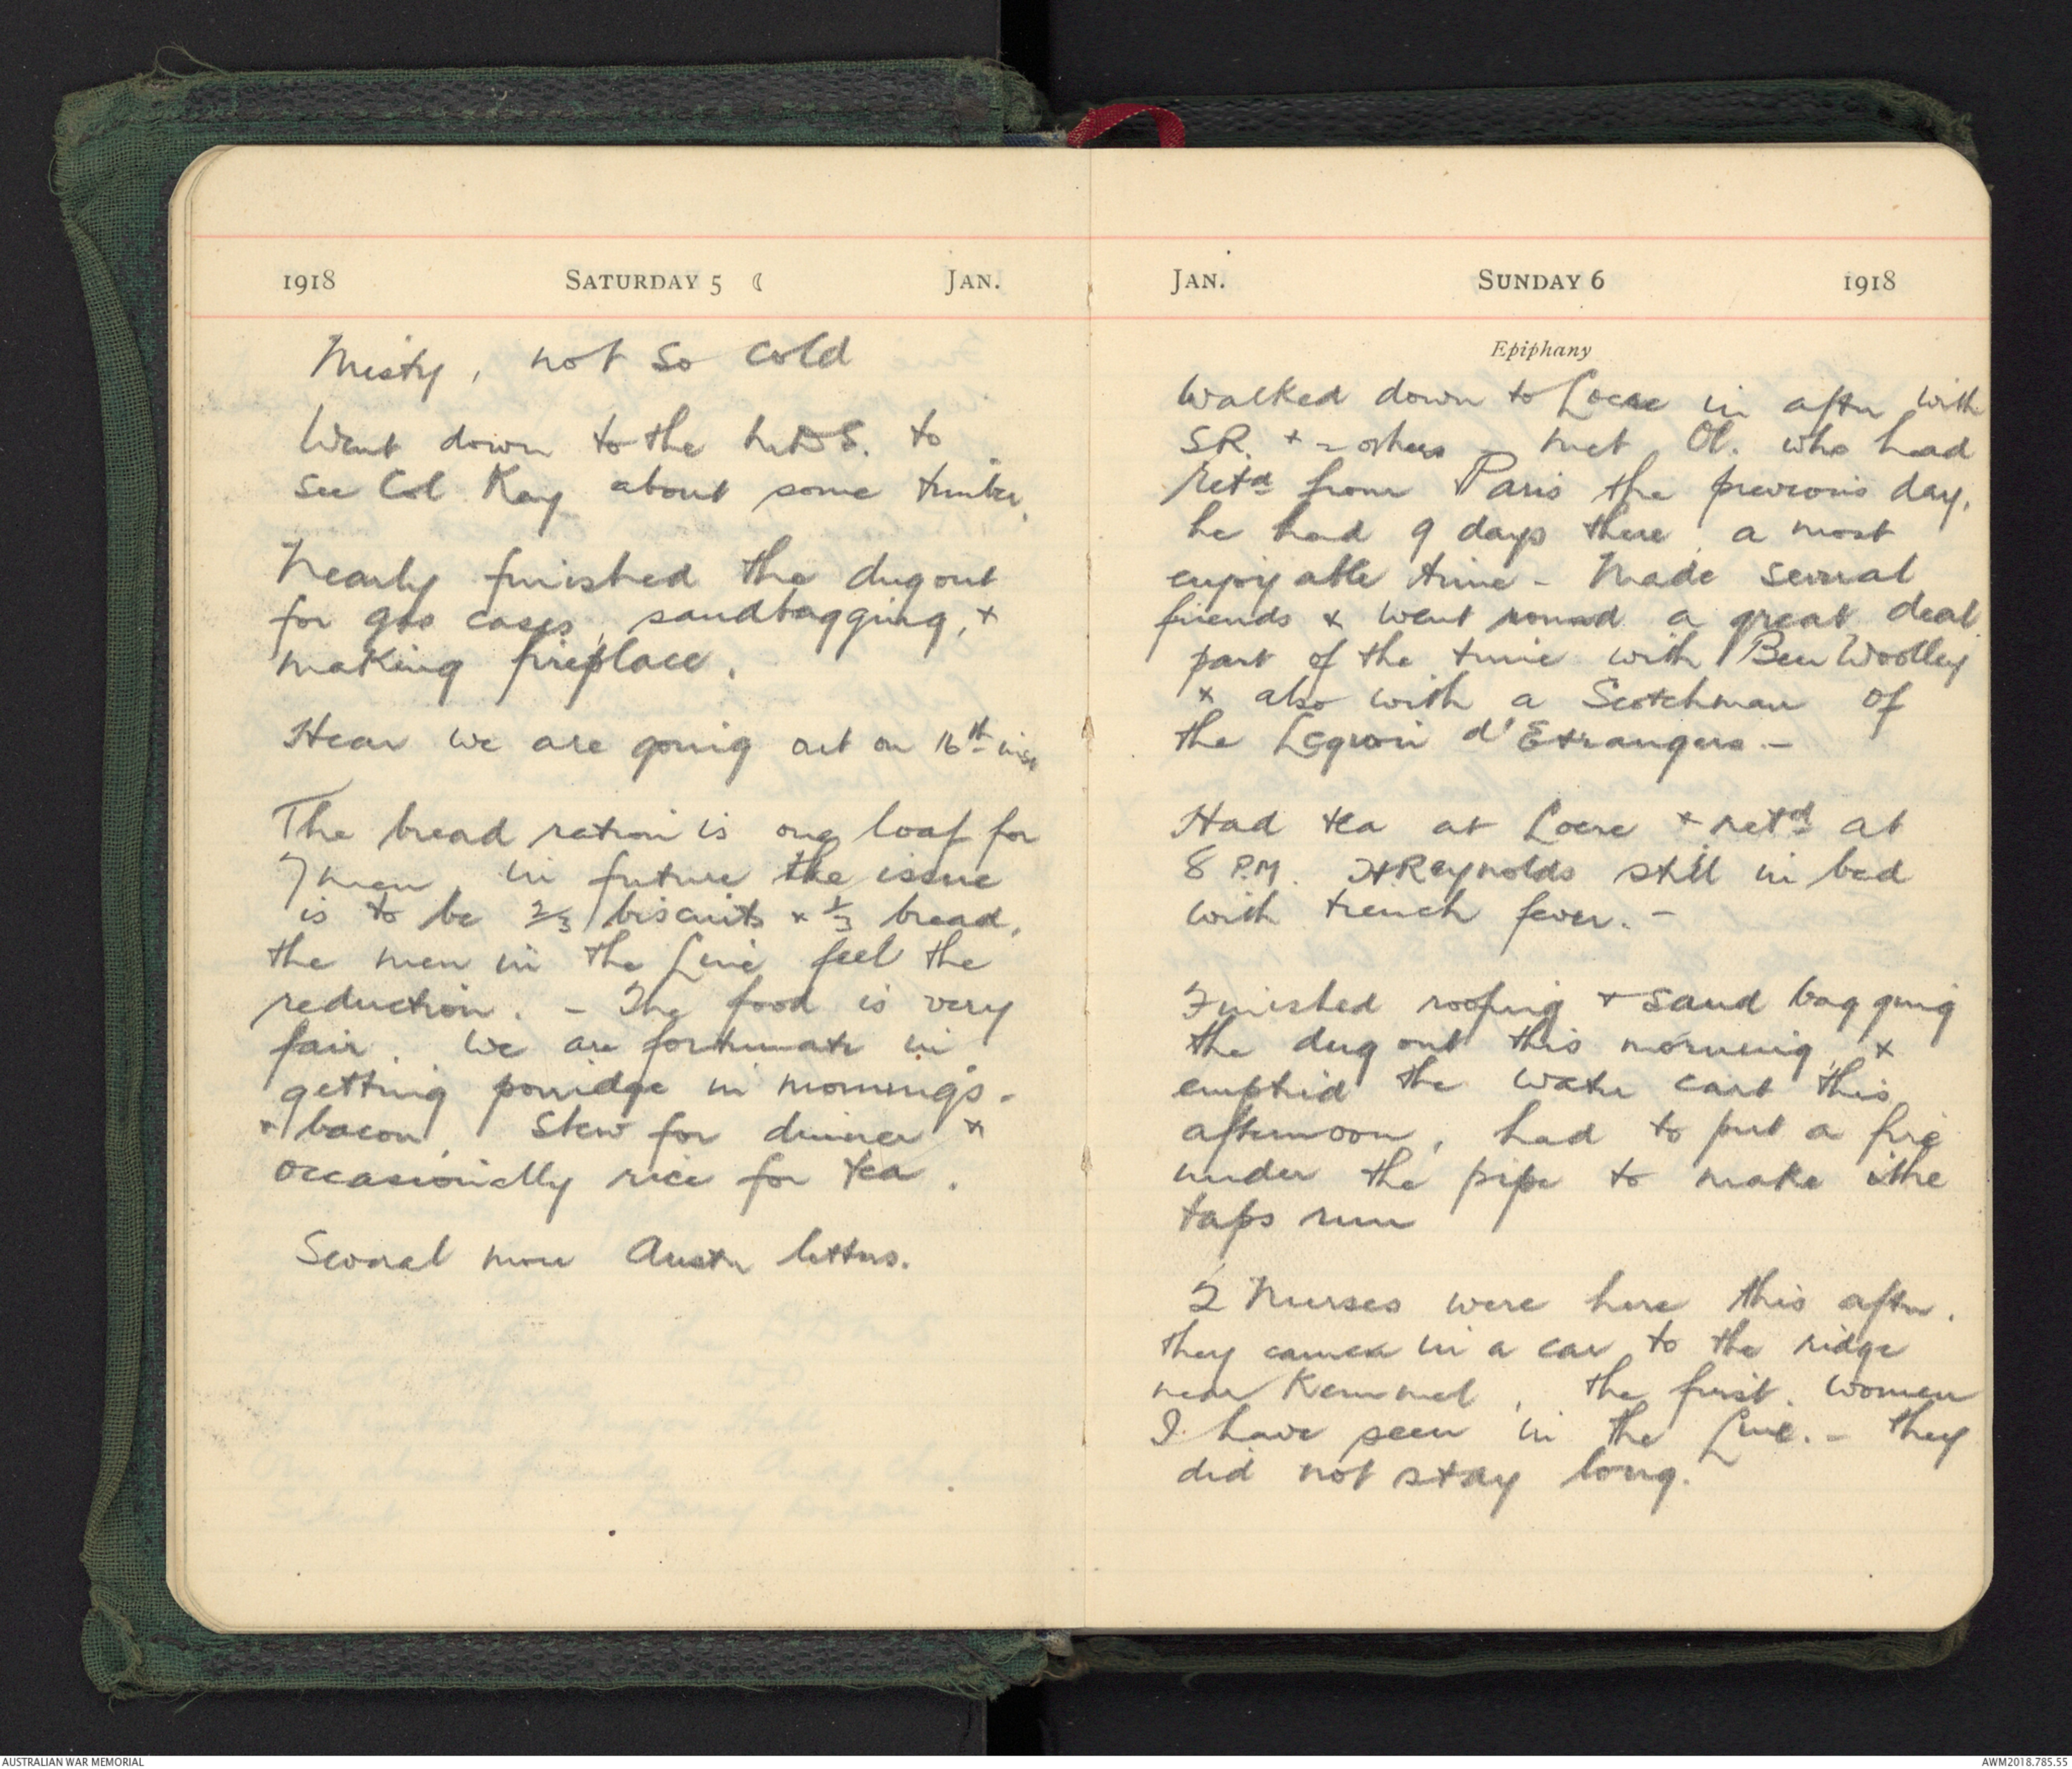 1918 SATURDAY 5 ☾ JAN.
Misty, not so cold
Went down to the M.D.S. to
see Col Kay about some timber.
Nearly finished the dugout
for gas cases, sandbagging, +
making fireplace.
Hear we are going out on 16th inst
The bread ration is one loaf for
7 men, in future the issue
is to be 2/3 biscuits + 1/3 bread,
the men in the Line feel the
reduction. - The food is very
fair. We are fortunate in
getting porridge in mornings.
+ bacon, Stew for dinner +
occasionally rice for tea.
Several more Austn letters.
JAN. SUNDAY 6 1918
Epiphany
Walked down to Locre in aftn with
SR. + 2 others - met Ol. who had
retd from Paris the previous day,
he had 9 days there, a most
enjoyable time - Made several
friends & went round a great deal
part of the time with Ben Woolley
& also with a Scotchman of
the Legion d'Etrangers. -
Had tea at Locre + retd at
8 P.M. H Reynolds still in bed
with trench fever. -
Finished roofing + sand bagging
the dug out this morning, +
emptied the water cart this
afternoon, had to put a fire
under the pipe to make the
taps run
2 Nurses were here this aftn.
they came in a car to the ridge
near Kemmel, the first women
I have seen in the Line. - they
did not stay long.
AUSTRALIAN WAR MEMORIAL
AWM2018.785.55